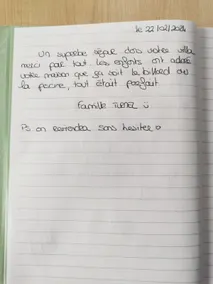 le 22/02/2024
Un superbe séjour dans votre villa
merci pour tout. Les enfants ont adoré
votre maison que ça soit le billard ou
la piscine, tout était parfait
Famille
Ps on reviendra sans hésiter